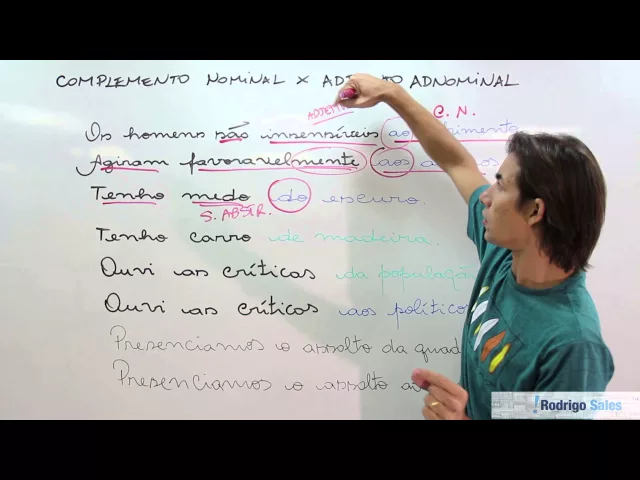 COMPLEMENTO NOMINAL X ADNOMINAL
ADJETI
C. N.
Os homens são insensíveis ao
Agiram favoravelmente aos
Tenho medo do escuro.
S. ABSTR.
Tenho carro de madeira.
Ouvi as críticas da populaçã
Ouvi as críticas aos político
Presenciamos o assalto da quad
Presenciamos o assalto
Rodrigo Sales